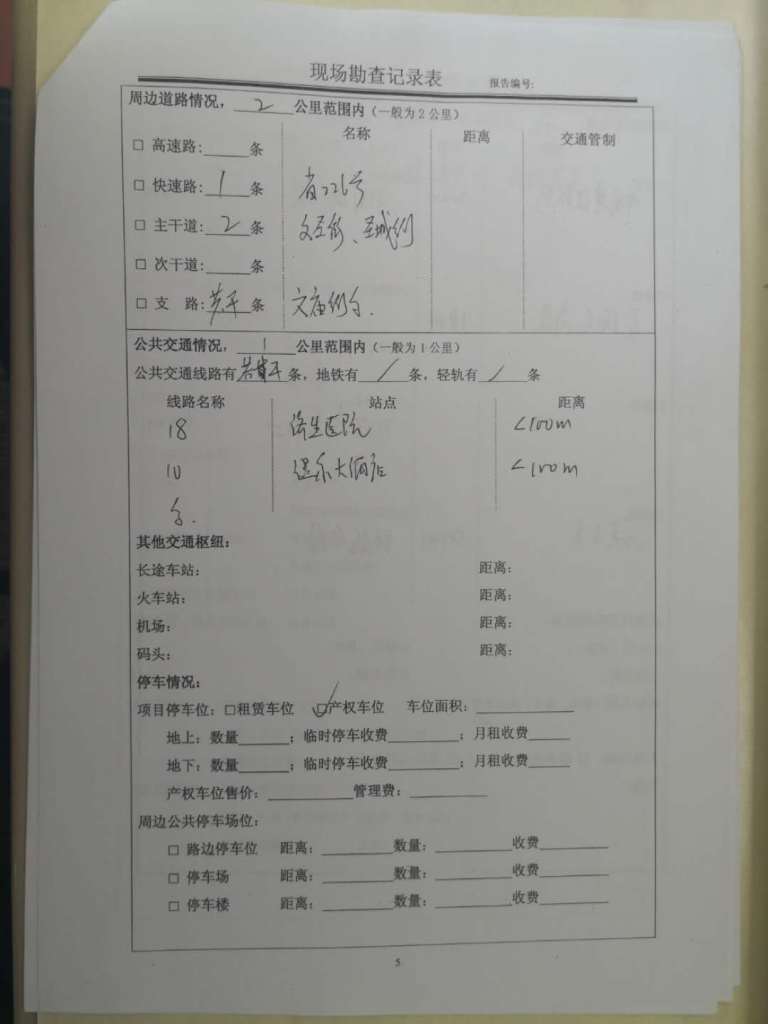 现场勘查记录表 报告编号:
周边道路情况， 2 公里范围内（一般为2公里）
名称 距离 交通管制
□ 高速路: 条
□ 快速路: 1 条 省226号
□ 主干道: 2 条 文圣街、圣城街
□ 次干道: 条
□ 支 路: 若干 条 文庙街等.
公共交通情况， 1 公里范围内（一般为1公里）
公共交通线路有 若干 条，地铁有 / 条，轻轨有 / 条
线路名称 站点 距离
18 济生医院 <100m
10 大酒店 <100m
等.
其他交通枢纽：
长途车站： 距离：
火车站： 距离：
机场： 距离：
码头： 距离：
停车情况：
项目停车位：□租赁车位 ☑产权车位 车位面积：
地上：数量 ；临时停车收费 ；月租收费
地下：数量 ；临时停车收费 ；月租收费
产权车位售价： 管理费：
周边公共停车场位：
□ 路边停车位 距离： 数量： 收费
□ 停车场 距离： 数量： 收费
□ 停车楼 距离： 数量： 收费
5